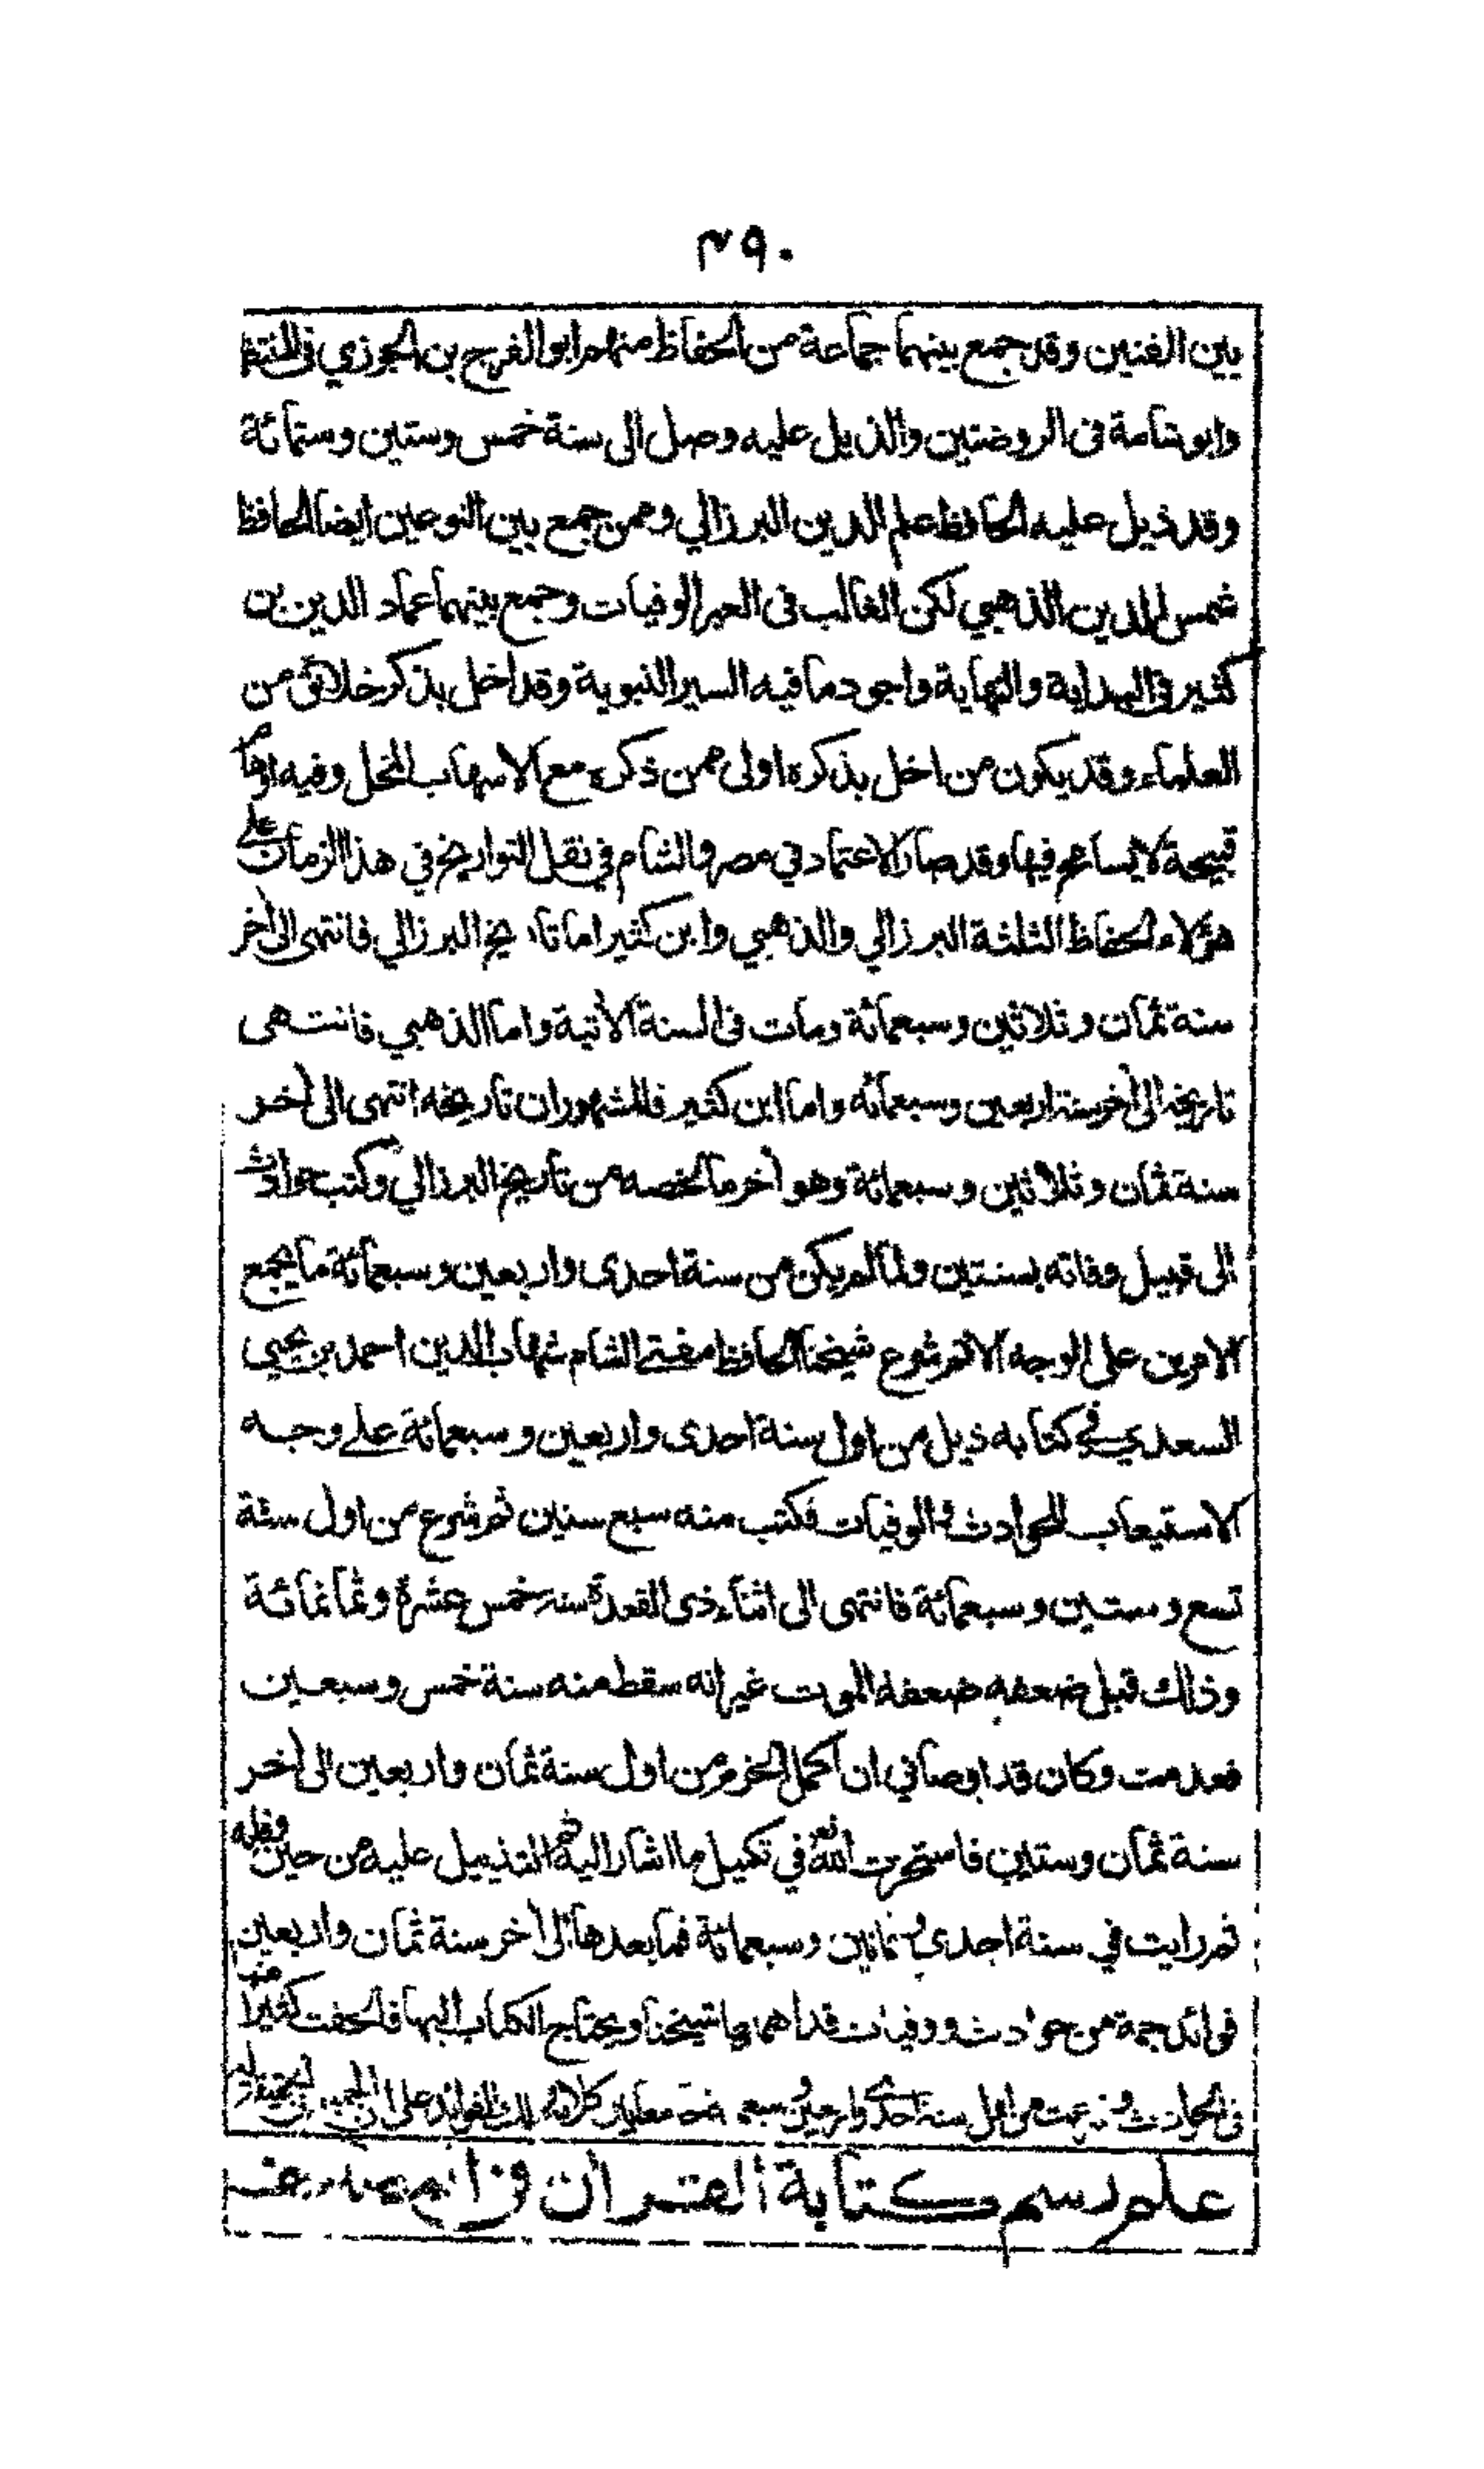 ٢٩٠
بين الفنين وقد جمع بينهما جماعة من الحفاظ منهم ابو الفرج بن الجوزي فى المنتظم
وابو شامة فى الروضتين والذيل عليه وصل الى سنة خمس وستين وستمائة
وقد ذيل عليه الحافظ علم الدين البرزالي وممن جمع بين النوعين ايضا الحافظ
شمس الدين الذهبي لكن الغالب فى العبر الوفيات وجمع بينهما عماد الدين بن
كثير فى البداية والنهاية واجود ما فيه السير النبوية وقد اخل بذكر خلائق من
العلماء وقد يكون من اخل بذكره اولى ممن ذكره مع الاسهاب المخل وفيه اوهام
قبيحة لا يسامح فيها وقد صار الاعتماد في مصر والشام في نقل التواريخ في هذا الزمان على
هؤلاء الحفاظ الثلثة البرزالي والذهبي وابن كثير اما تاريخ البرزالي فانتهى الى أخر
سنة ثمان وثلاثين وسبعمائة ومات فى السنة الأتية واما الذهبي فانتهى
تاريخه الى أخر سنة اربعين وسبعمائه واما ابن كثير فالمشهور ان تاريخه انتهى الى أخر
سنة ثمان وثلاثين وسبعمائة وهو أخر ما لخصه من تاريخ البرزالي وكتب حوادث
الى قبيل وفاته بسنتين ولما لم يكن من سنة احدى واربعين وسبعمائة ما يجمع
الامرين على الوجه الاتم شرع شيخنا الحافظ مفتى الشام شهاب الدين احمد بن يحيى
السعدي في كتابه ذيل من اول سنة احدى واربعين وسبعمائة على وجه
الاستيعاب للحوادث والوفيات فكتب منه سبع سنين ثم شرع من اول سنة
تسع وستين وسبعمائة فانتهى الى اثناء ذى القعدة سنة خمس عشرة وثمانمائة
وذلك قبل ضعفه ضعفة الموت غير انه سقط منه سنة خمس وسبعين
فعدمت وكان قد اوصاني ان اكمل الخرم من اول سنة ثمان واربعين الى أخر
سنة ثمان وستين فاستخرت الله في تكميل ما اشار اليه ثم التذييل عليه من حين وفاته
ثم رايت في سنة احدى وثمانين وسبعمائة فما بعدها الى أخر سنة ثمان واربعين
فوائد جمة من حوادث ووفيات قد اهملها شيخنا ويحتاج الكتاب اليها فالحقت كثيرا منها
فى الحوادث من اول سنة احدى واربعين وسبعمائة على ان
علم رسم كتابة القران في